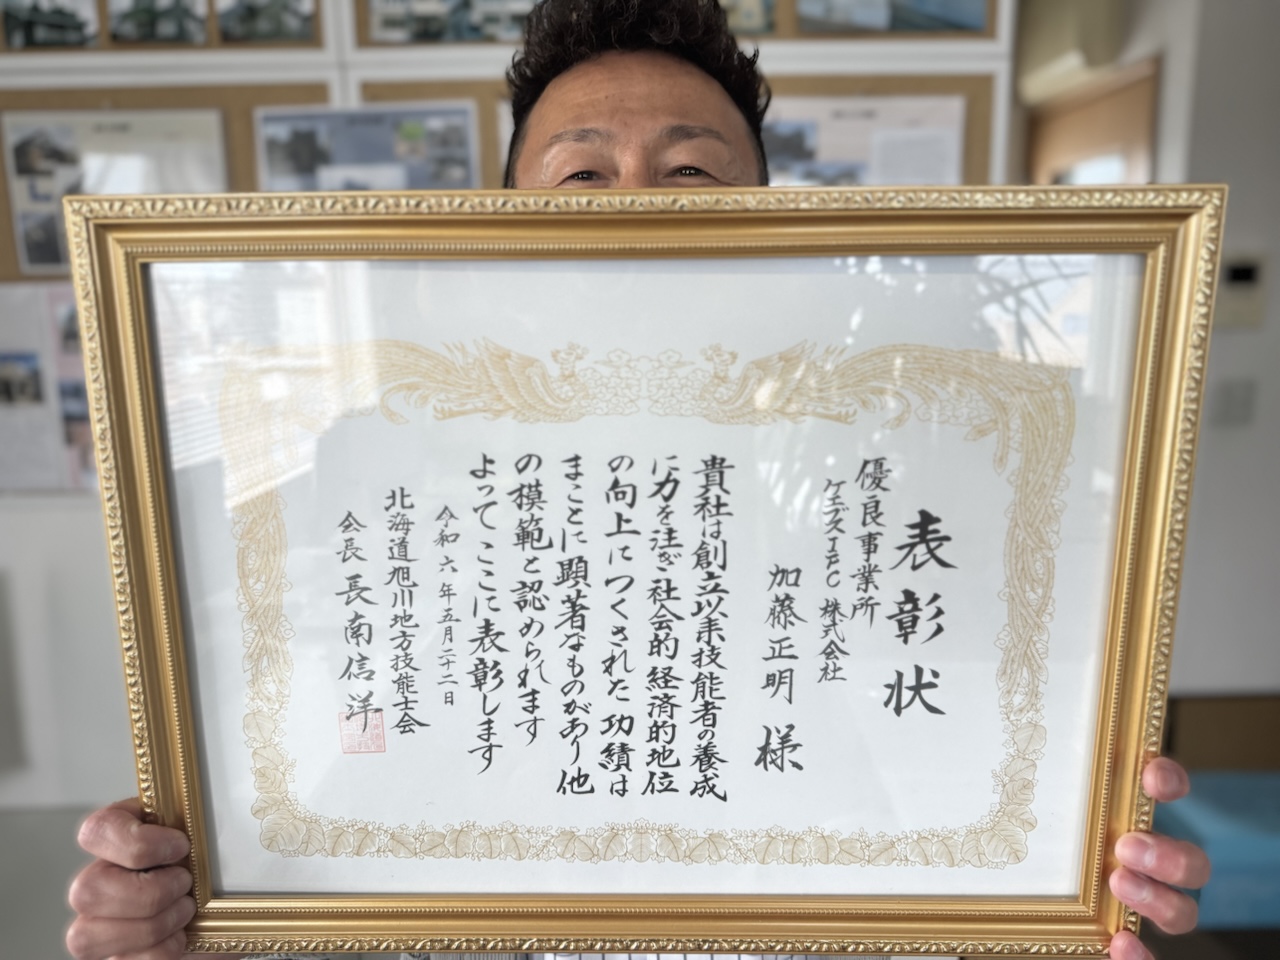 表彰状
優良事業所
ケエブスIFC 株式会社
加藤正明 様
貴社は創立以来技能者の養成
に力を注ぎ社会的経済的地位
の向上につくされた功績は
まことに顕著なものがあり他
の模範と認められます
よってここに表彰します
令和六年五月二十二日
北海道旭川地方技能士会
会長 長南信洋